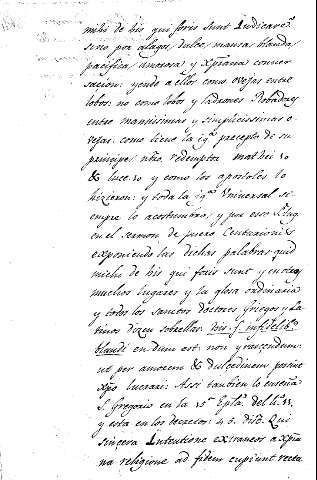 mihi de his qui foris sunt Iudicare?
sino por alagos, dulce, mansa, blanda
pacifica, amorosa, y xp̃iana conver
sacion: yendo a ellos como ovejas entre
lobos: no como lobos y ladrones Robadores
entre mansissimas y simplicissimas o-
vejas. como tiene la ig.ª precepto de su
principe nr̃o. redemptor mathei 10
& luce. 10 y como los apostoles lo
hizieron: y toda la ig.ª Universal si-
empre lo acostumbro, y por eso S. Aug.
en el sermon de puero Centurionis
exponiendo las dichas palabras quid
mihi de his qui foris sunt y en otros
muchos lugares y la glosa ordinaria
y todos los sanctos doctores Griegos y La
tinos dizen sobrellas his. s. infidelib.
blandiendum est. non
ut per amorem & dulcedinem possint
xp̃o lucrari. Assi tambien lo enseña
S. Gregorio en la 15ª Epl.ª del l.º 11.
y esta en los decretos: 45. dist. Qui
sincera Intentione extraneos a xp̃ia
na religione ad fidem cupiunt recta